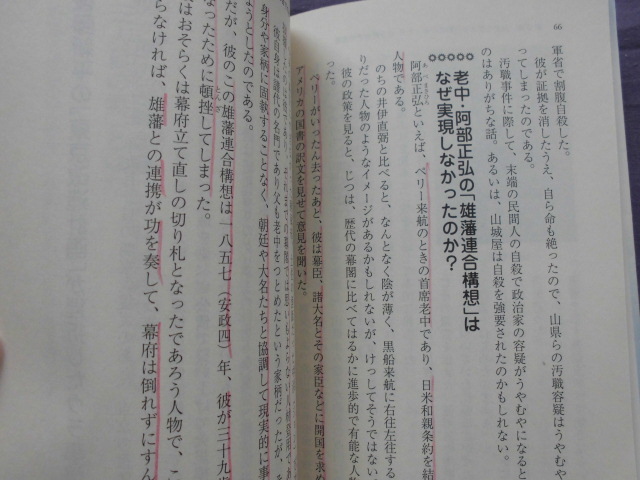 66
軍省で割腹自殺した。
彼が証拠を消したうえ、自ら命も絶ったので、山県らの汚職容疑はうやむや
ってしまったのである。
汚職事件に際して、末端の民間人の自殺で政治家の容疑がうやむやになると
のはありがちな話。あるいは、山城屋は自殺を強要されたのかもしれない。
老中・阿部正弘の「雄藩連合構想」は
なぜ実現しなかったのか?
阿部正弘といえば、ペリー来航のときの首席老中であり、日米和親条約を結
人物である。
のちの井伊直弼と比べると、なんとなく陰が薄く、黒船来航に右往左往する
りだった人物のようなイメージがあるかもしれないが、けっしてそうではない
彼の政策を見ると、じつは、歴代の幕閣に比べてはるかに進歩的で有能な人
った。
ペリーがいったん去ったあと、彼は幕臣、諸大名とその家臣などに開国を求め
アメリカの国書の訳文を見せて意見を聞いた。
彼自身は譜代の名門であり父も老中をつとめたという家柄だったが、
身分や家柄に固執することなく、朝廷や大名たちと協調して現実的に事
ようとしたのである。
だが、彼のこの雄藩連合構想は一八五七(安政四)年、彼が三十九歳
なったために頓挫してしまった。
はおそらくは幕府立て直しの切り札となったであろう人物で、こ
らなければ、雄藩との連携が功を奏して、幕府は倒れずにすん